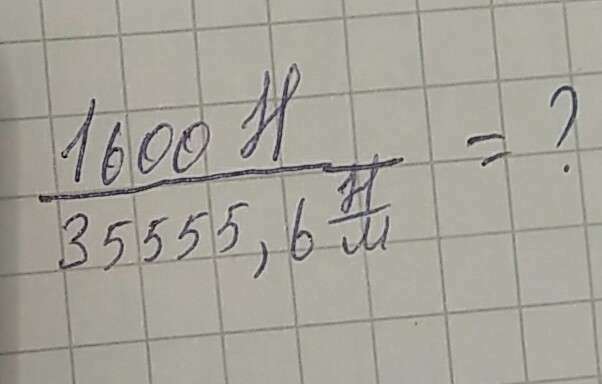 1600 Н
= ?
35555,6 Н/м